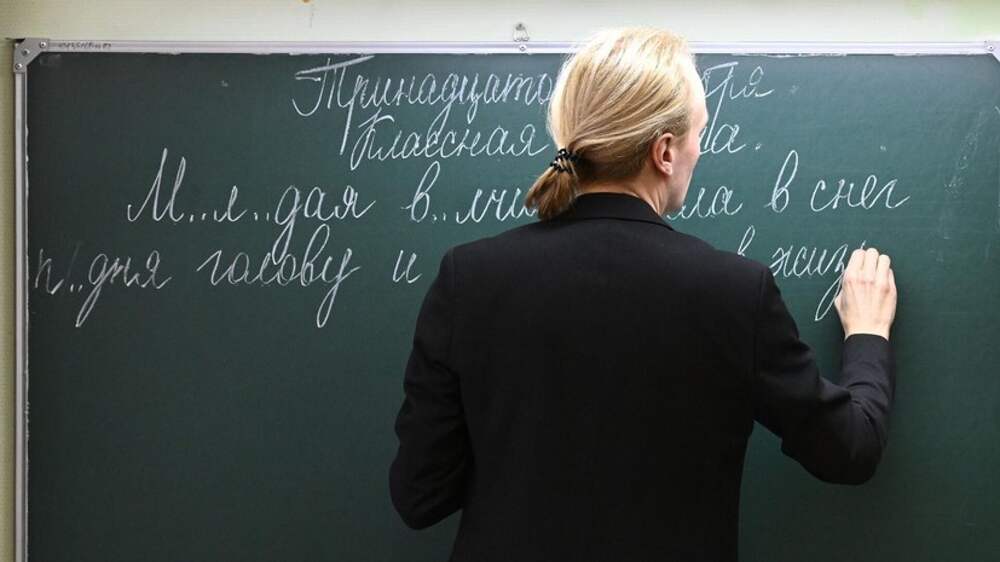 Тринадцато бря
Классная а.
М..л..дая в..лчи ла в снег
п..дня голову и в жиз